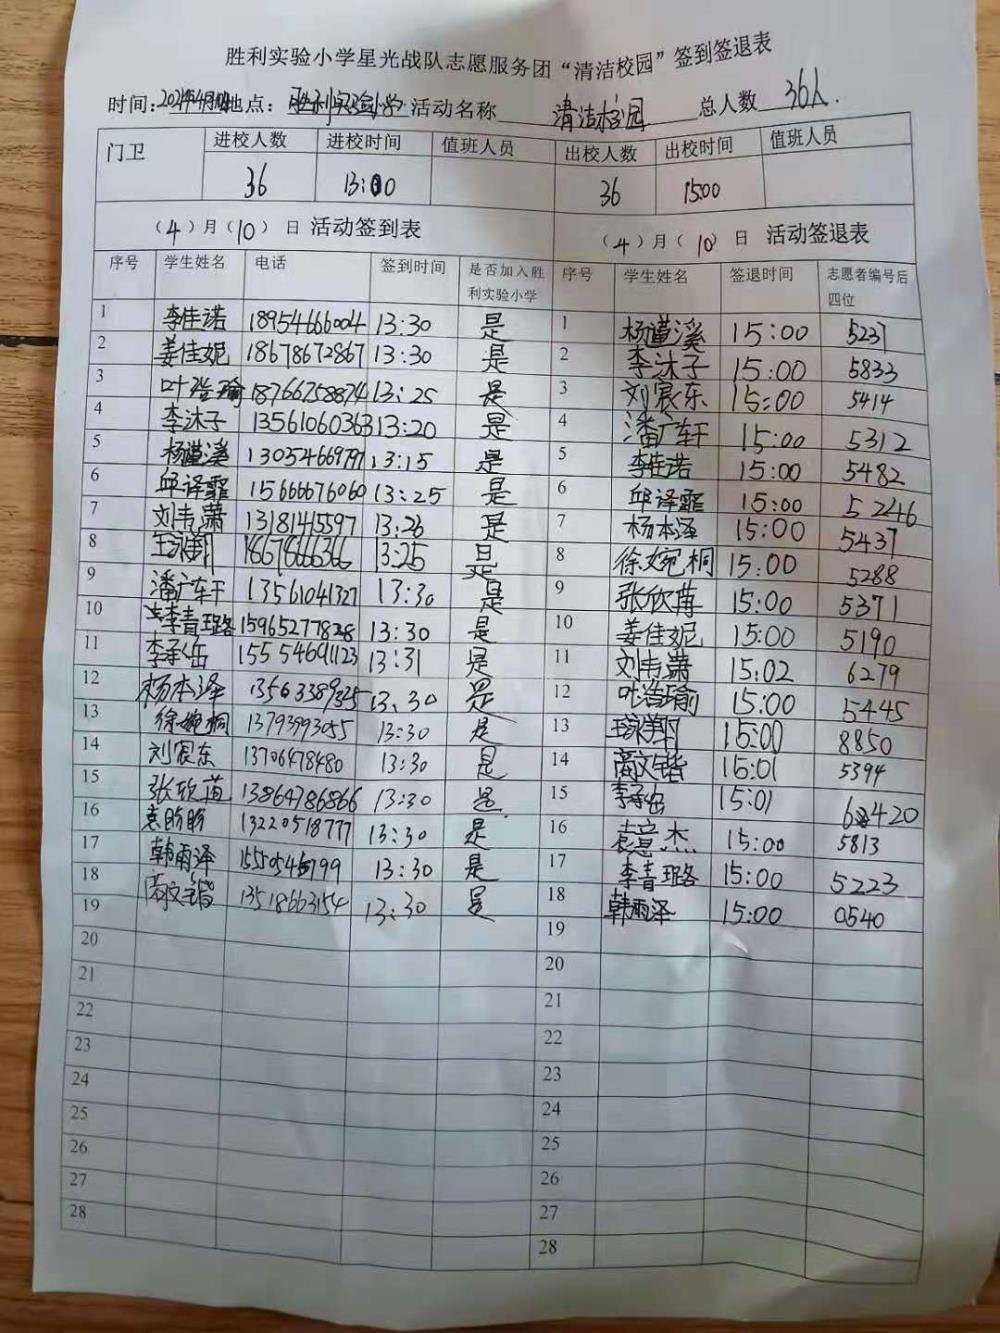 胜利实验小学星光战队志愿服务团“清洁校园”签到签退表
时间: 地点: 胜利实验小学 活动名称 清洁校园 总人数 36人.
门卫 进校人数 进校时间 值班人员 出校人数 出校时间 值班人员
36 13:00 36 15:00
（4）月（10）日 活动签到表 （4）月（10）日 活动签退表
序号 学生姓名 电话 签到时间 是否加入胜利实验小学 序号 学生姓名 签退时间 志愿者编号后四位
1 李佳诺 18954666004 13:30 是 1 杨谨溪 15:00 5237
2 姜佳妮 18678672867 13:30 是 2 李沐子 15:00 5833
3 叶浩瑜 18766758874 13:25 是 3 刘宸东 15:00 5414
4 李沐子 13561060363 13:20 是 4 潘广轩 15:00 5312
5 杨谨溪 13054669797 13:15 是 5 李佳诺 15:00 5482
6 邱译霏 15666676060 13:25 是 6 邱译霏 15:00 5246
7 刘韦萧 13181415597 13:26 是 7 杨本泽 15:00 5437
8 王泳翔 18678666366 13:25 是 8 徐婉桐 15:00 5288
9 潘广轩 13561041327 13:30 是 9 张欣 15:00 5371
10 李青璐 15965277828 13:30 是 10 姜佳妮 15:00 5190
11 李承岳 15554691123 13:31 是 11 刘韦萧 15:02 6279
12 杨本泽 13563389325 13:30 是 12 叶浩瑜 15:00 5445
13 徐婉桐 13793593055 13:30 是 13 王泳翔 15:00 8850
14 刘宸东 13706478480 13:30 是 14 高文锴 15:01 5394
15 张欣 13864786866 13:30 是 15 李承岳 15:01 6420
16 袁 13220518777 13:30 是 16 袁意杰 15:00 5813
17 韩雨泽 13:30 是 17 李青璐 15:00 5223
18 高文锴 13518663154 13:30 是 18 韩雨泽 15:00 0540
19 19
20 20
21 21
22 22
23 23
24 24
25 25
26 26
27 27
28 28